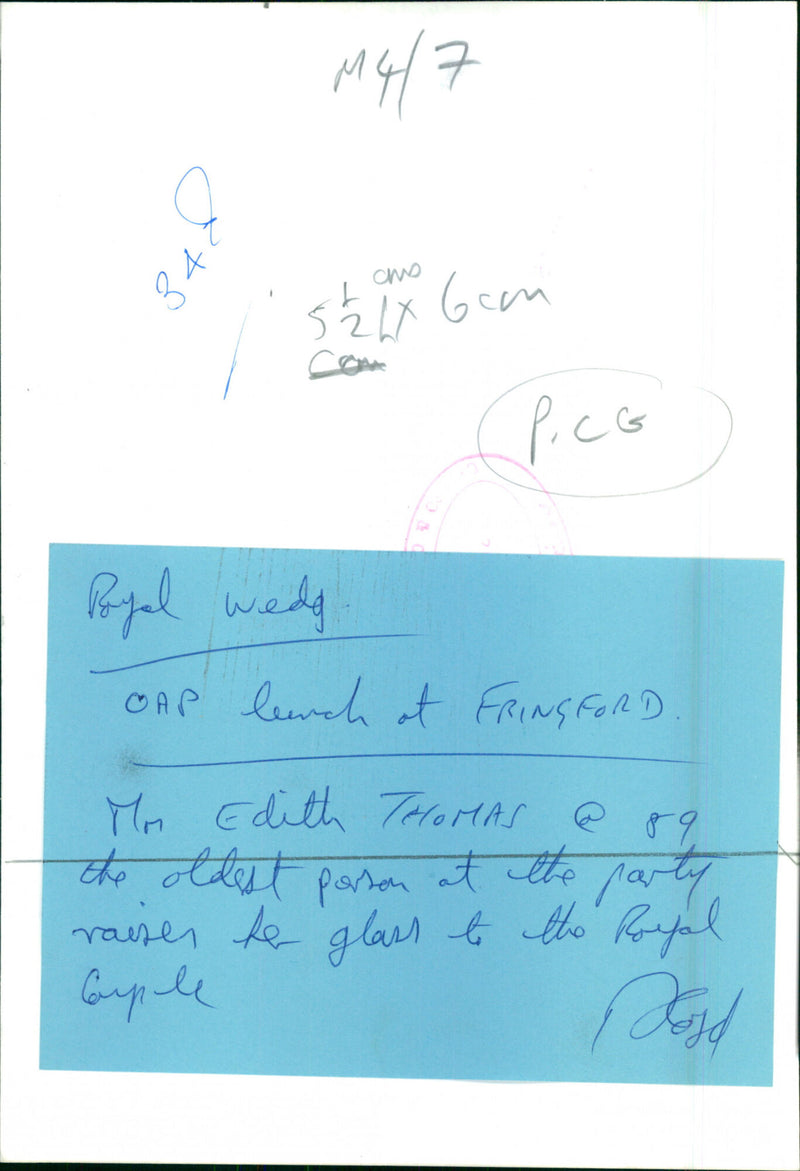 M4/7
3 x
5½ cms x 6cm
P.CG
Royal Wedg
OAP lunch at FRINGFORD.
Mrs Edith THOMAS @ 89
the oldest person at the party
raises her glass to the Royal
Couple